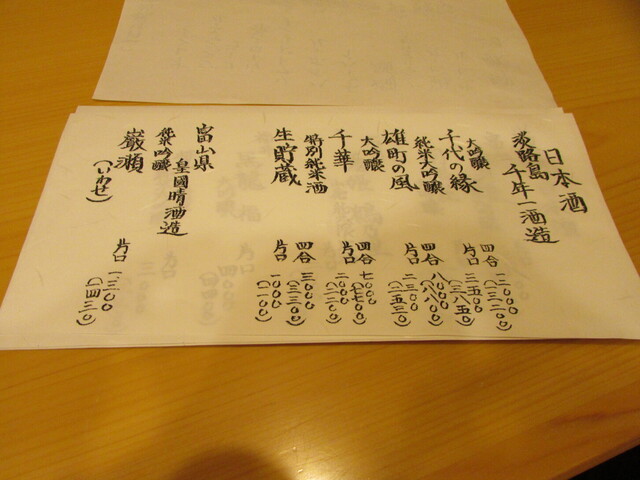 日本酒
淡路島 千年一酒造
大吟醸 四合 一二〇〇〇
(一三二〇〇)
千代の縁 片口 三五〇〇
(三八五〇)
純米大吟醸 四合 八〇〇〇
(八八〇〇)
雄町の風 片口 二三〇〇
(二五三〇)
大吟醸 四合 七〇〇〇
(七七〇〇)
千華 片口 二〇〇〇
(二二〇〇)
特別純米酒 四合 三〇〇〇
(三三〇〇)
生貯蔵 片口 一〇〇〇
(一一〇〇)
富山県 皇國晴酒造
純米吟醸
巌瀬 片口 一三〇〇
(いわせ) (一四三〇)